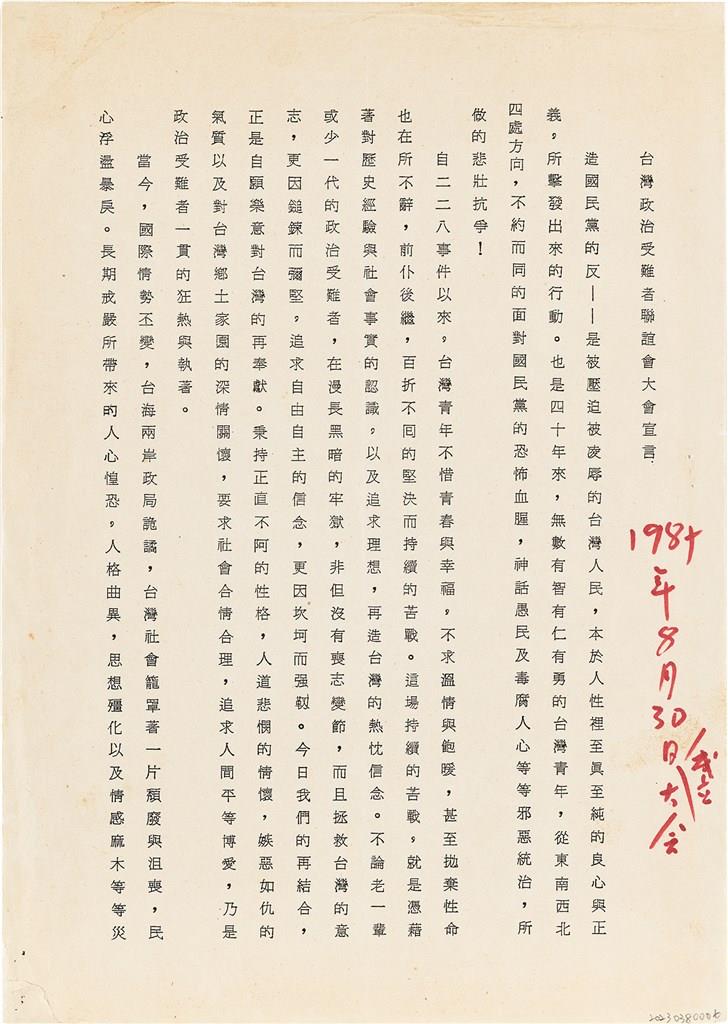 台灣政治受難者聯誼會大會宣言
造國民黨的反——是被壓迫被凌辱的台灣人民，本於人性裡至眞至純的良心與正
義，所擊發出來的行動。也是四十年來，無數有智有仁有勇的台灣青年，從東南西北
四處方向，不約而同的面對國民黨的恐怖血腥，神話愚民及毒腐人心等等邪惡統治，所
做的悲壯抗爭！
自二二八事件以來，台灣青年不惜青春與幸福，不求溫情與飽暖，甚至拋棄性命
也在所不辭，前仆後繼，百折不囘的堅決而持續的苦戰。這場持續的苦戰，就是憑藉
著對歷史經驗與社會事實的認識，以及追求理想，再造台灣的熱忱信念。不論老一輩
或少一代的政治受難者，在漫長黑暗的牢獄，非但沒有喪志變節，而且拯救台灣的意
志，更因鎚鍊而彌堅，追求自由自主的信念，更因坎坷而强靱。今日我們的再結合，
正是自願樂意對台灣的再奉獻。秉持正直不阿的性格，人道悲憫的情懷，嫉惡如仇的
氣質以及對台灣鄉土家園的深情關懷，要求社會合情合理，追求人間平等博愛，乃是
政治受難者一貫的狂熱與執著。
當今，國際情勢丕變，台海兩岸政局詭譎，台灣社會籠罩著一片頹廢與沮喪，民
心浮盪暴戾。長期戒嚴所帶來的人心惶恐，人格曲異，思想殭化以及情感麻木等等災
1987年8月30日成立大會